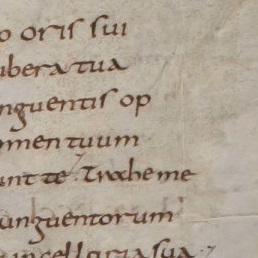 o oris sui
ubera tua
nguentis op
men tuum
unt te. Trahe me
unguentorum
in cellaria sua